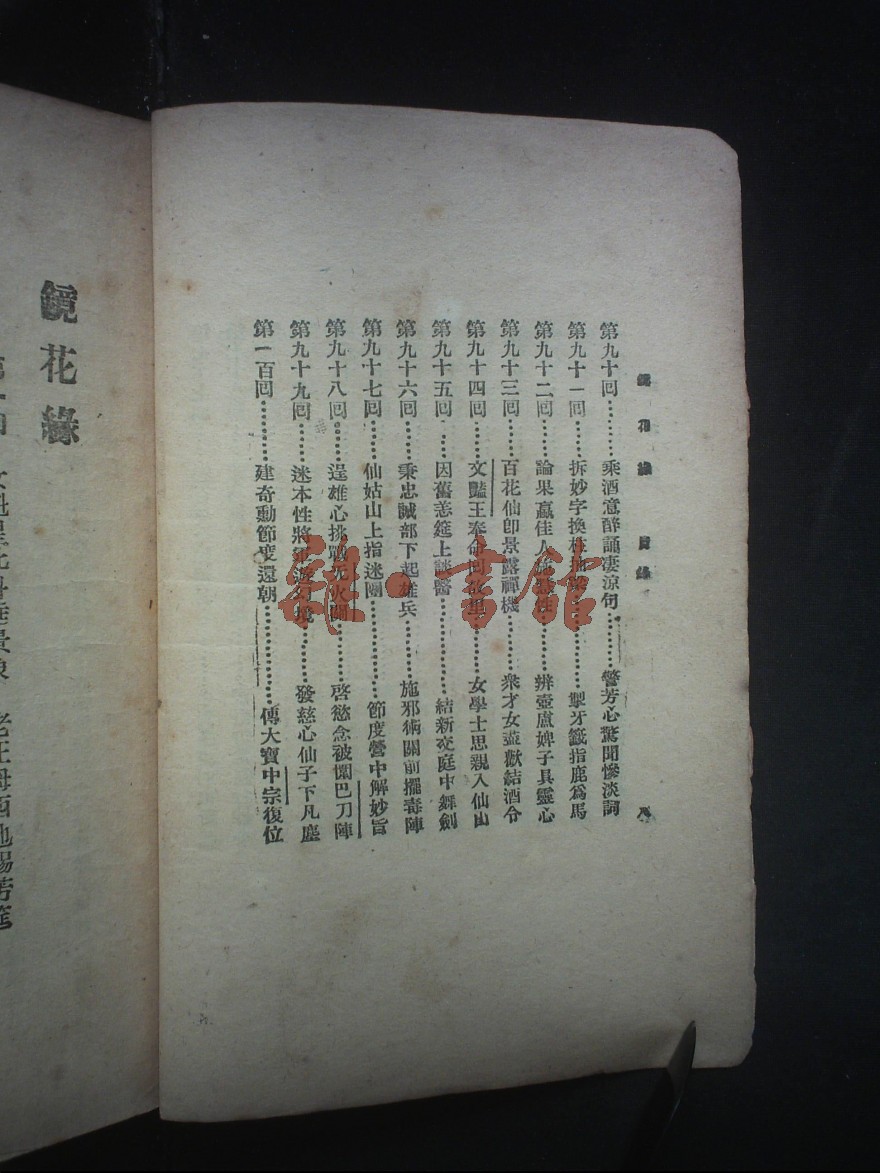 鏡花緣 目錄 八
第九十回………乘酒意醉誦凄涼句………警芳心驚聞慘淡詞
第九十一回………拆妙字換柱抽梁………掣牙籤指鹿爲馬
第九十二回………論果蠃佳人施慧性………辨壺盧婢子具靈心
第九十三回………百花仙卽景露禪機………衆才女盡歡結酒令
第九十四回………文豔王奉命回故里………女學士思親入仙山
第九十五回………因舊恙筵上談醫………結新交庭中舞劍
第九十六回………秉忠誠部下起雄兵………施邪術關前擺毒陣
第九十七回………仙姑山上指迷團………節度營中解妙旨
第九十八回………逞雄心挑戰无火關………啓慾念被圍巴刀陣
第九十九回………迷本性將軍遊幻境………發慈心仙子下凡塵
第一百回………建奇勳節度還朝………傳大寶中宗復位
鏡花緣
雜·書館